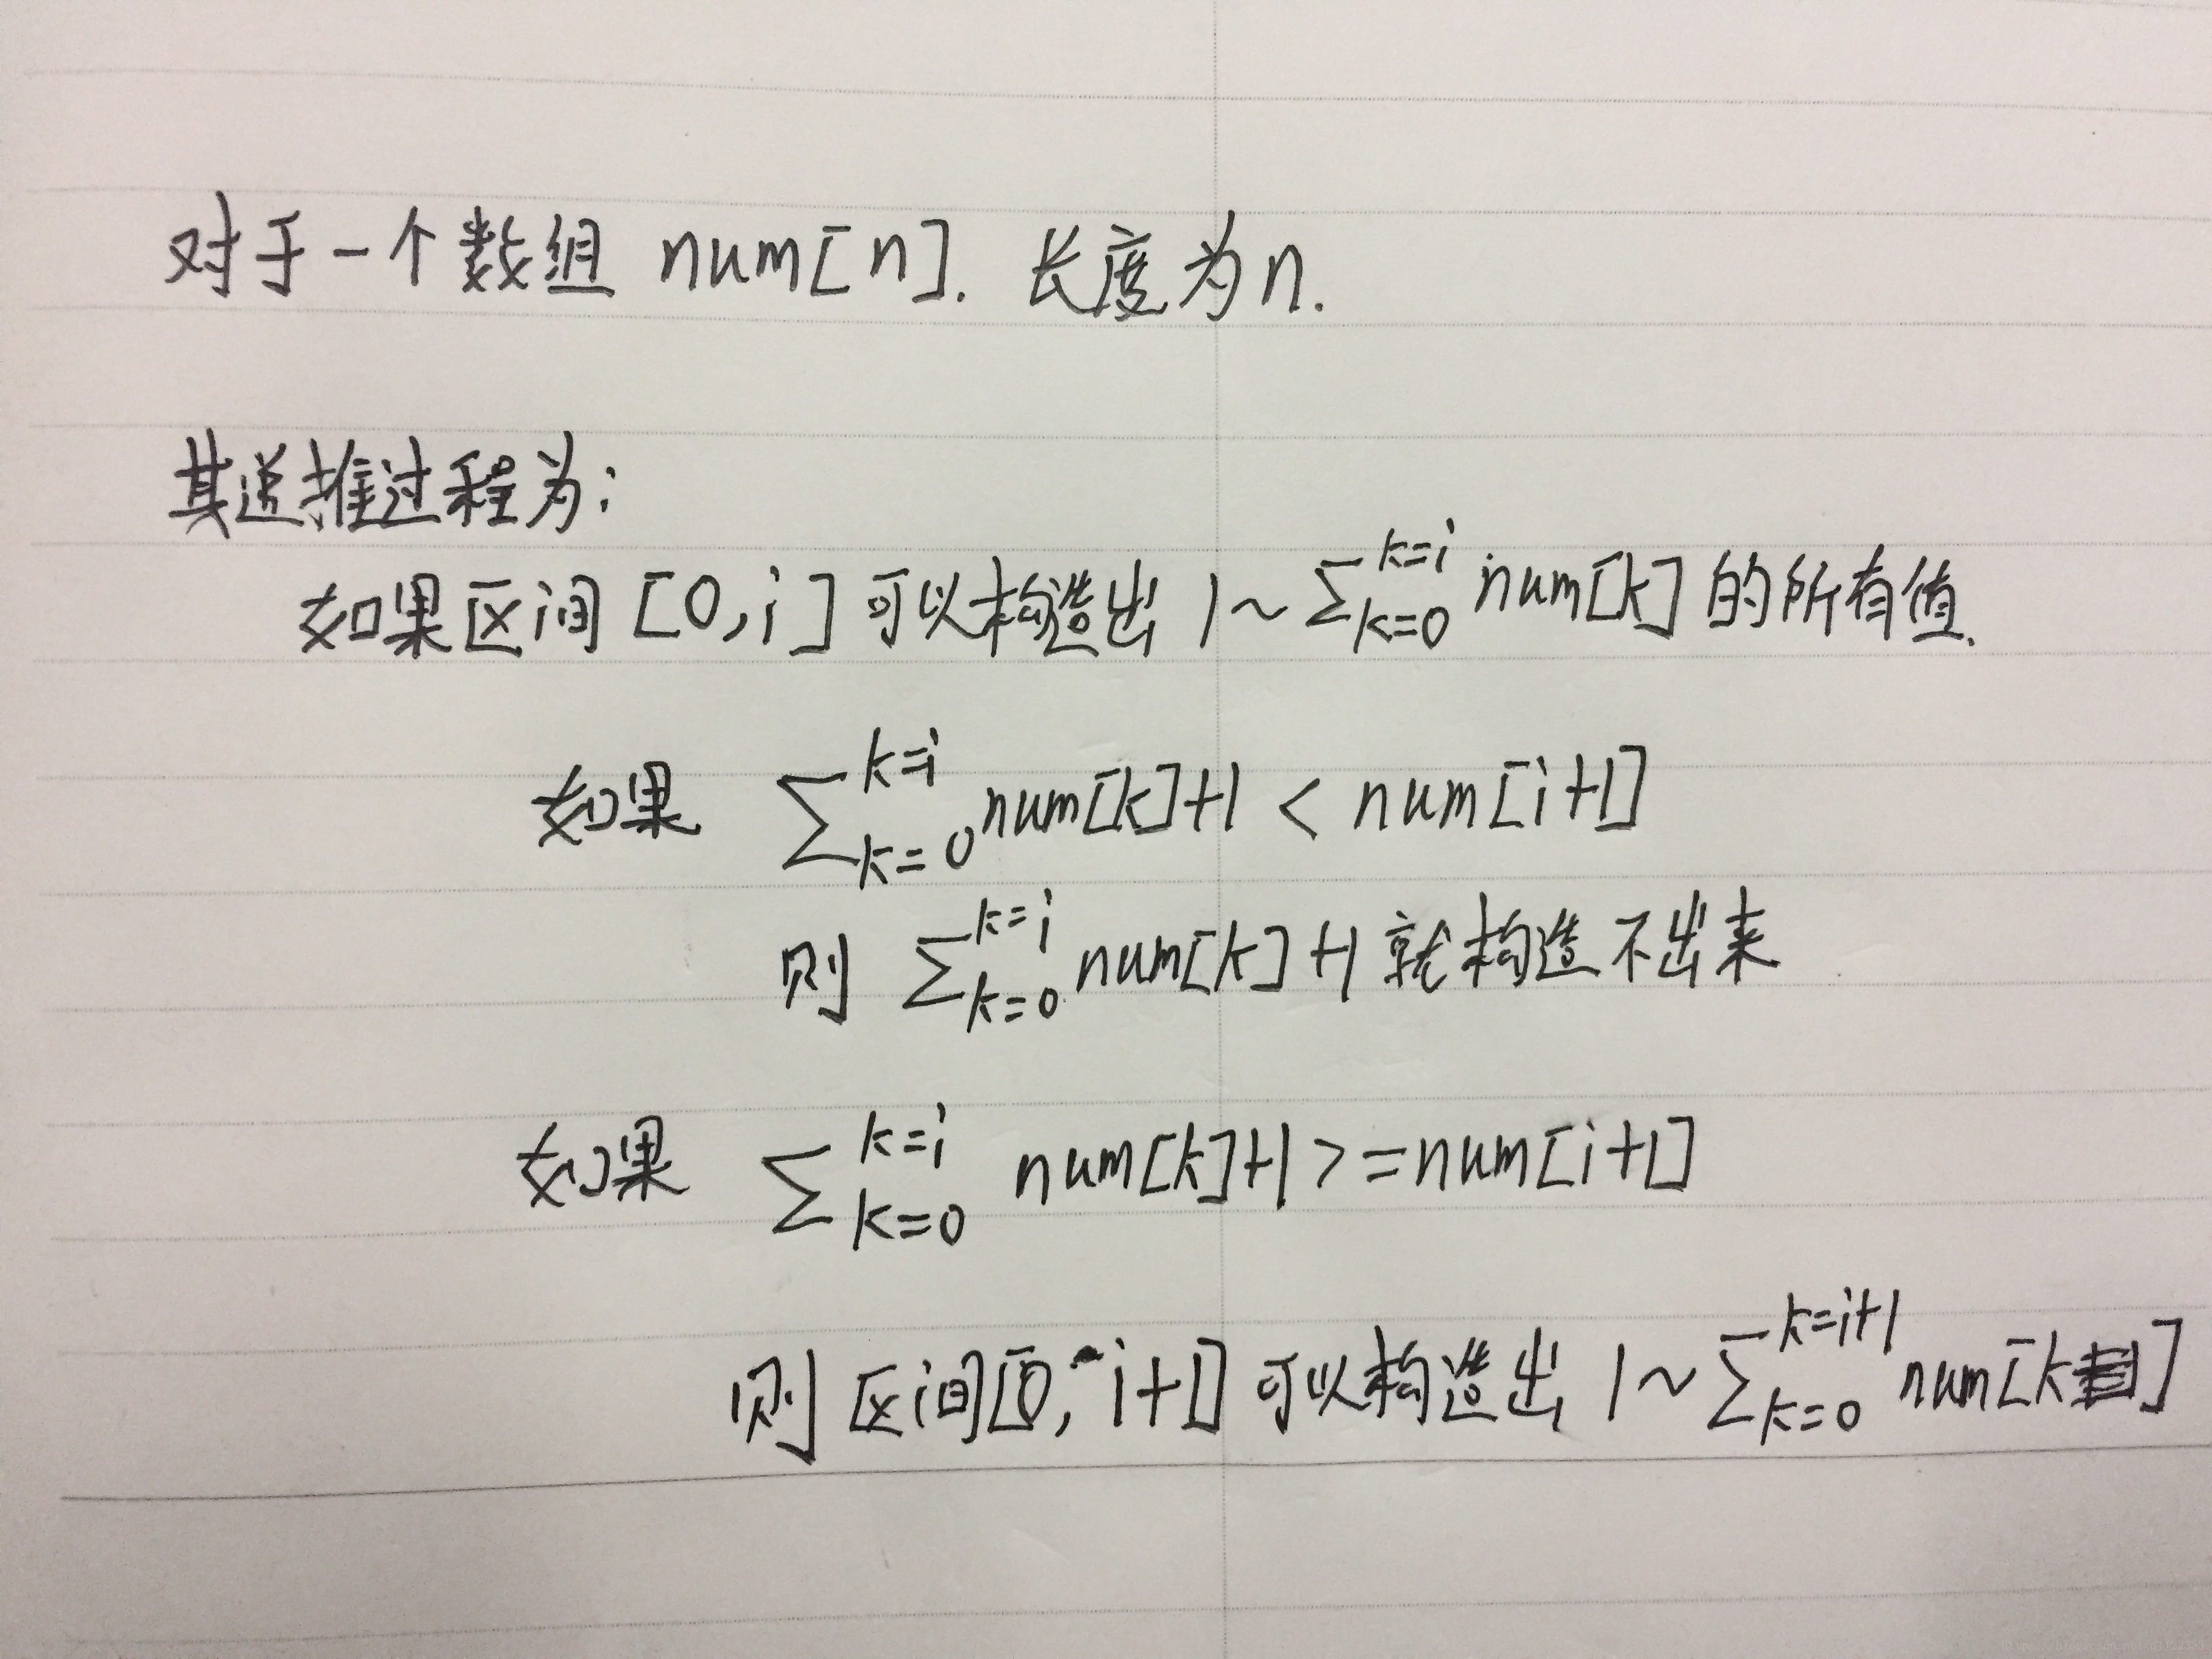 对于一个数组 num[n]. 长度为n.
其递推过程为:
如果区间[0,i]可以构造出 1~∑_{k=0}^{k=i} num[k] 的所有值.
如果 ∑_{k=0}^{k=i} num[k]+1 < num[i+1]
则 ∑_{k=0}^{k=i} num[k]+1 就构造不出来
如果 ∑_{k=0}^{k=i} num[k]+1 >= num[i+1]
则 区间[0, i+1] 可以构造出 1~∑_{k=0}^{k=i+1} num[k]